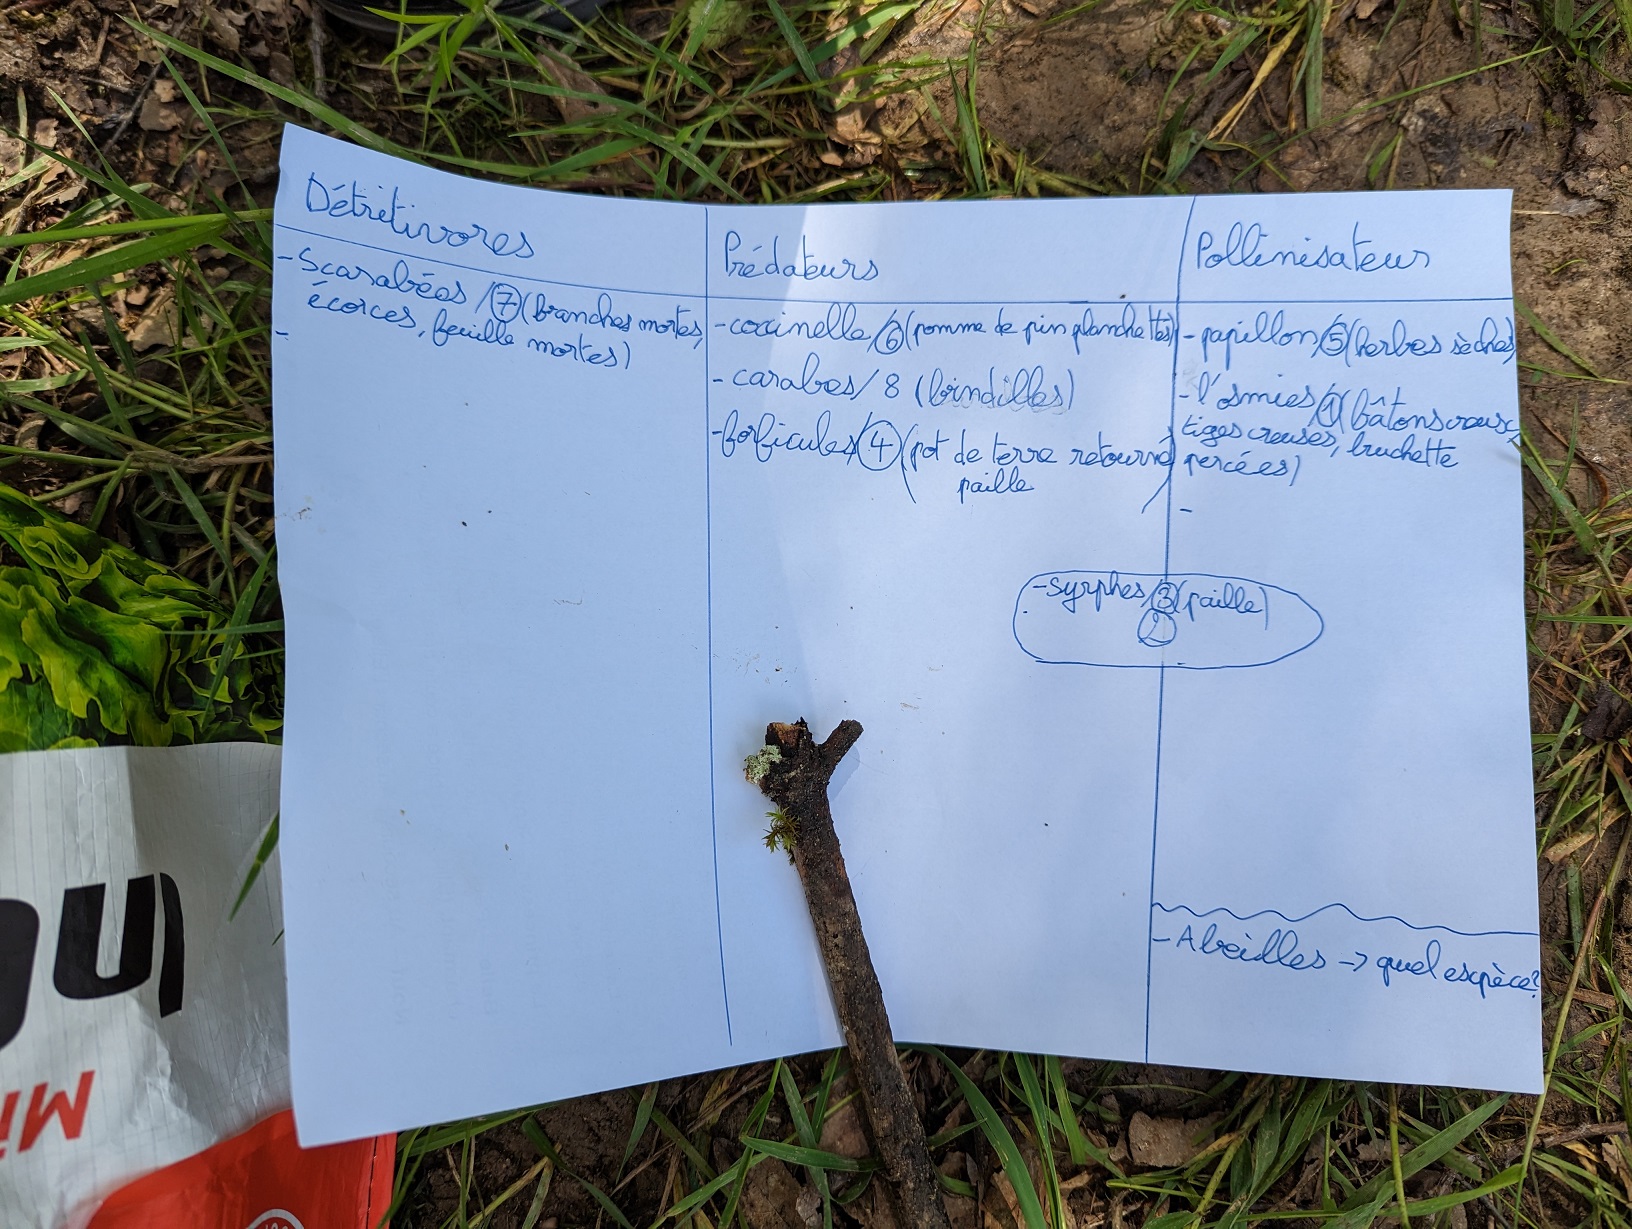 Détritivores
- Scarabées / 7 (branches mortes,
écorces, feuille mortes)
-
Prédateurs
- coccinelle / 6 (pomme de pin planchettes)
- carabes / 8 (brindilles)
- forficules / 4 (pot de terre retourné
paille )
Pollinisateur
- papillon / 5 (herbes sèches)
- l'osmies / 1 (bâtons creuse,
tiges creuses, bruchette
percées)
-
- syrphes / 3 (paille)
2
- Abeilles -> quel espèce?
Mi